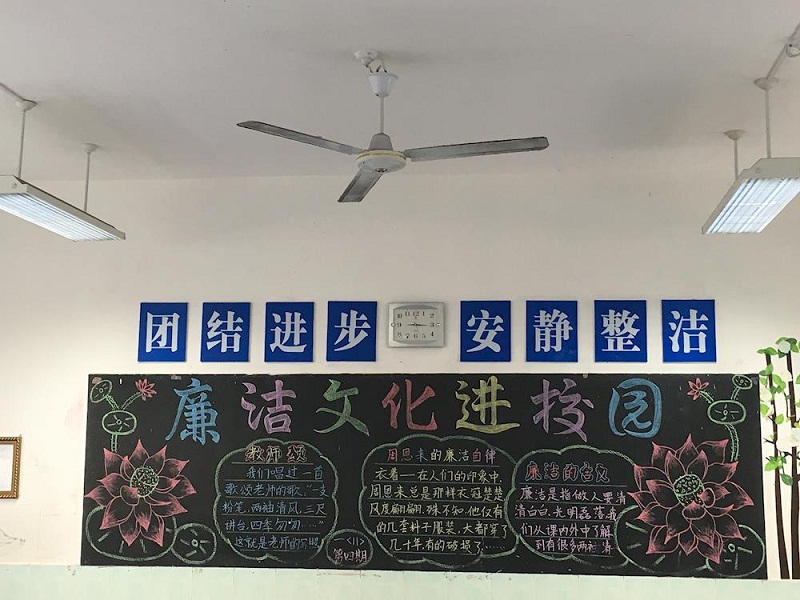 团结进步 安静整洁
廉洁文化进校园
教师颂
我们唱过一首
歌颂老师的歌:“一支
粉笔,两袖清风,三尺
讲台,四季匆匆……”
这就是老师的写照
<11>
第四期
周恩来的廉洁自律
衣着——在人们的印象中,
周恩来总是那样衣冠楚楚
风度翩翩,殊不知,他仅有
的几套料子服装,大都穿了
几十年,有的破损了……
廉洁的含义
廉洁是指做人要清
清白白,光明磊落,我
们从课内外中了解
到有很多两袖清